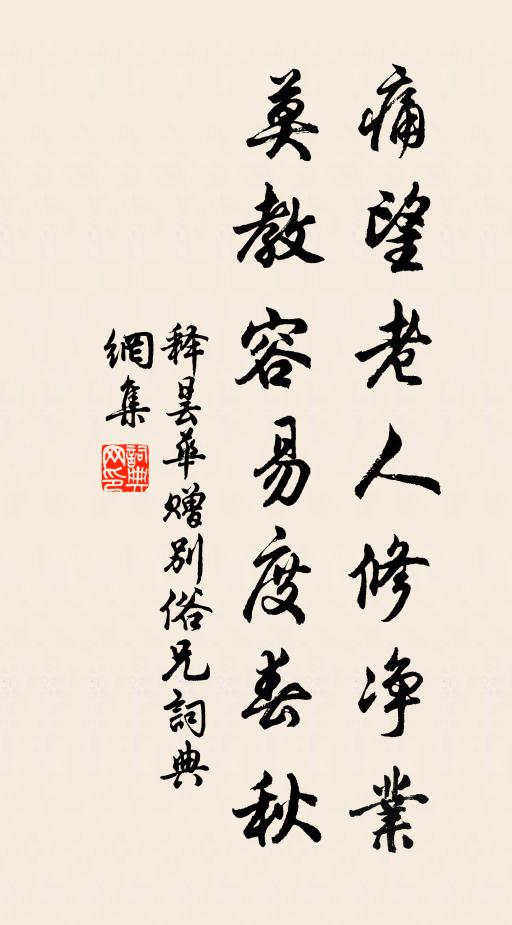 痛望老人修净業
莫教容易度春秋
释曇華赠别俗兄詞典
網集
詞典网印